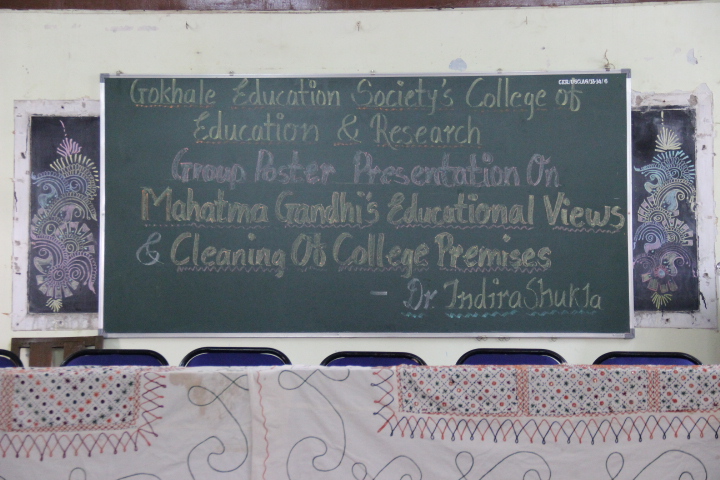 Gokhale Education Society's College of
Education & Research
Group Poster Presentation On
Mahatma Gandhi's Educational Views
& Cleaning Of College Premises
- Dr Indira Shukla